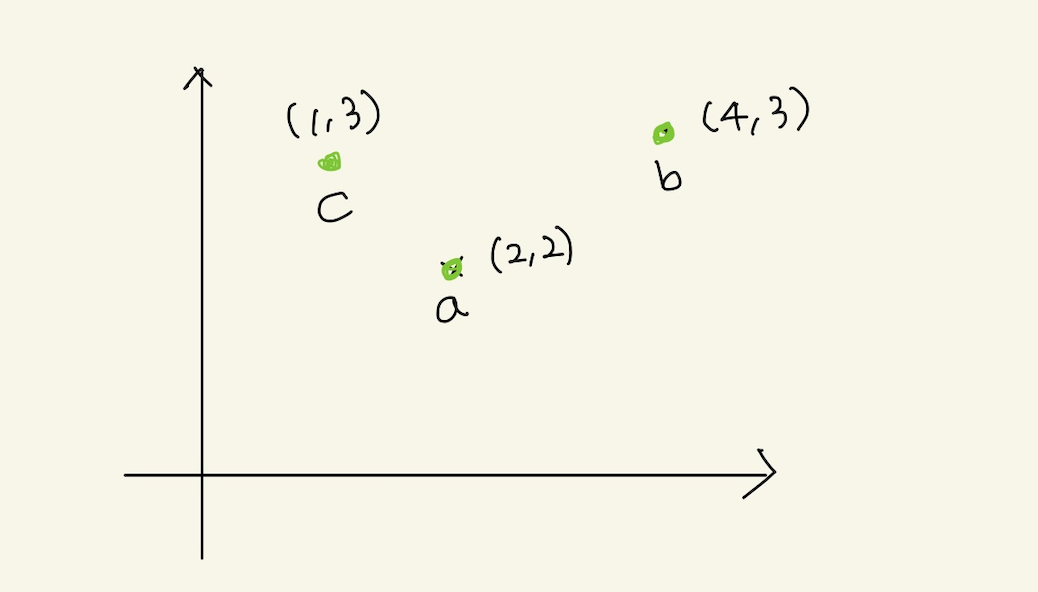 (1,3)
c
(4,3)
b
(2,2)
a